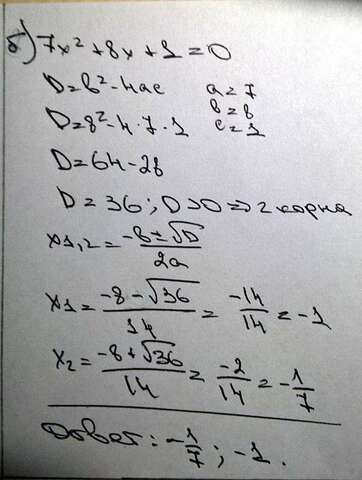 б) 7x² + 8x + 1 = 0
D = b² - 4ac   a = 7
D = 8² - 4 · 7 · 1   b = 8
D = 64 - 28   c = 1
D = 36 ; D > 0 => 2 корня
x1,2 = (-b ± √D) / 2a
x1 = (-8 - √36) / 14 = -14/14 = -1
x2 = (-8 + √36) / 14 = -2/14 = -1/7
Ответ: -1/7 ; -1.